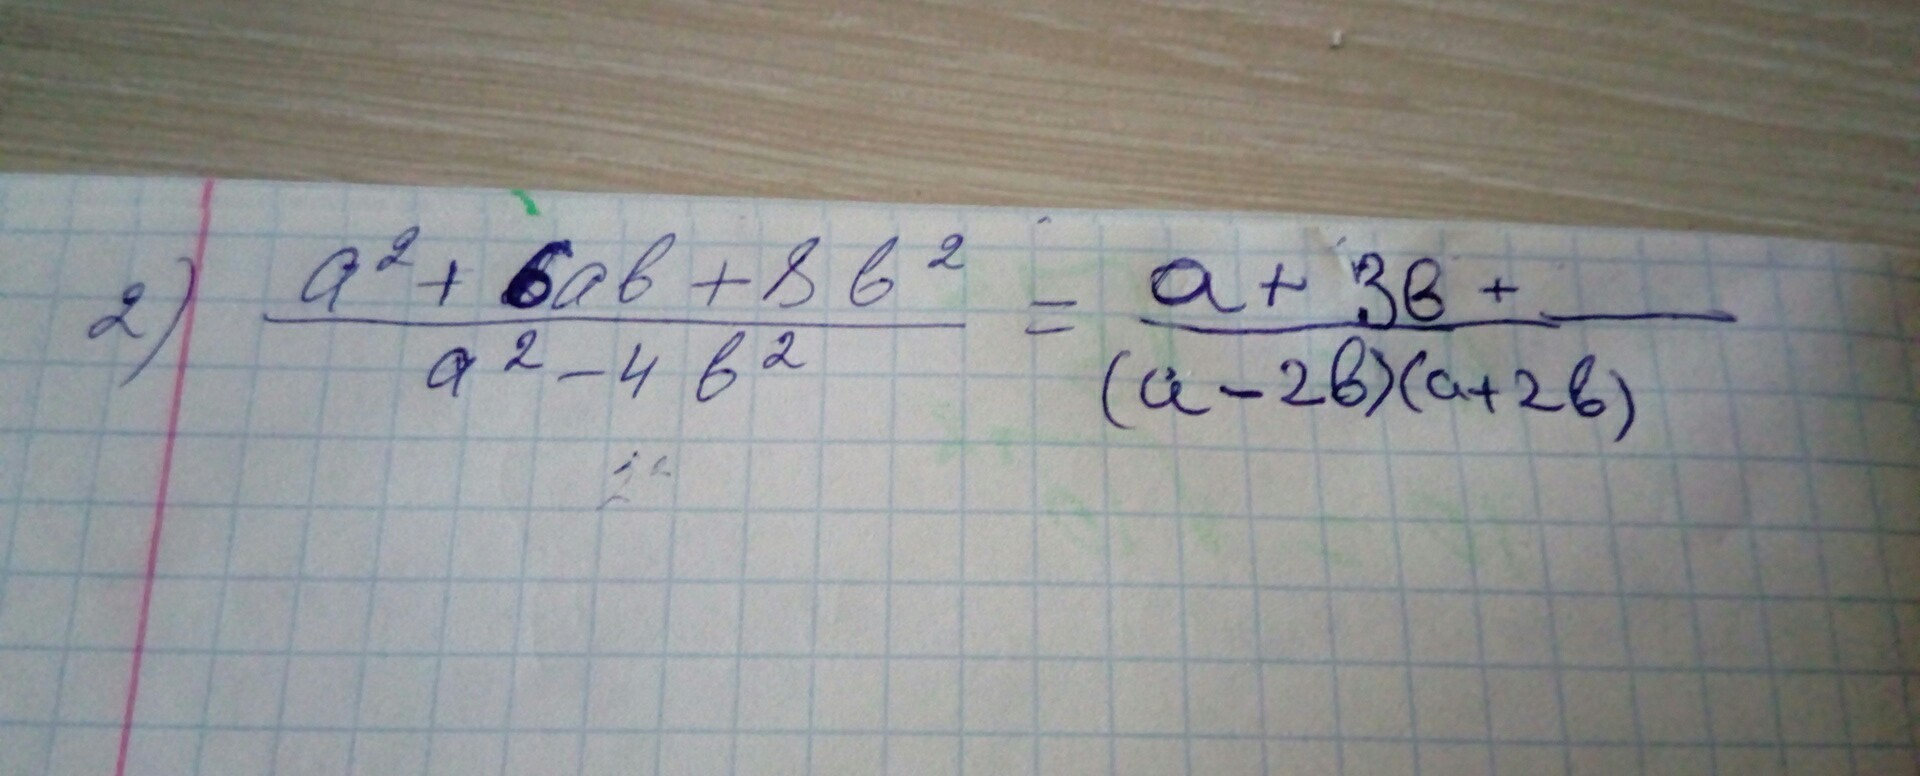 2) a² + 6ab + 8b² / a² - 4b² = a + 3b + ___ / (a - 2b)(a + 2b)